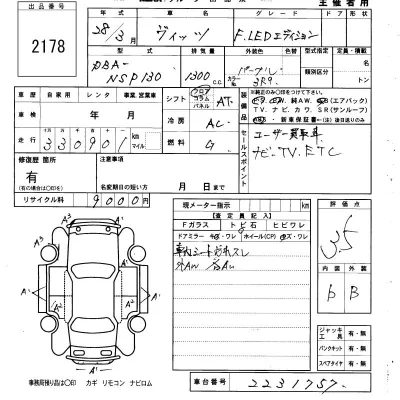 出品番号 年式 車名 グレード ドア 形状
2178 28/3月 ヴィッツ F.LEDエディション
型式 排気量 外装色 色替 型式指定 定員・積載
DBA-NSP130 1300cc パープル カラーNo. 3R9. 類別区分 トン
車歴 自家用 レンタ 事業、営業車 シフト フロア コラム パネル AT 装備品
車検 年 月 冷房 AC
走行 330901 km マイル 燃料 G セールスポイント
TV、ナビ、カワ、SR(サンルーフ)
新車保証書
ユーザー買取車
ナビ・TV、ETC
修復歴 箇所
有
(有の場合は○印を) 名変期日の短い方 月 日まで
リサイクル料 9000 円
現メーター指示 km
【査定員記入】
Fガラス トビ石 ヒビワレ
ドアミラー キズ・ワレ ホイール(CP) キズ・ワレ
評価点
3.5
内装 外装
B B
ジャッキ 工具 有・無
パンクキット 有・無
スペアタイヤ 有・無
事務局預り品は○印 カギ リモコン ナビロム
車台番号 2231757